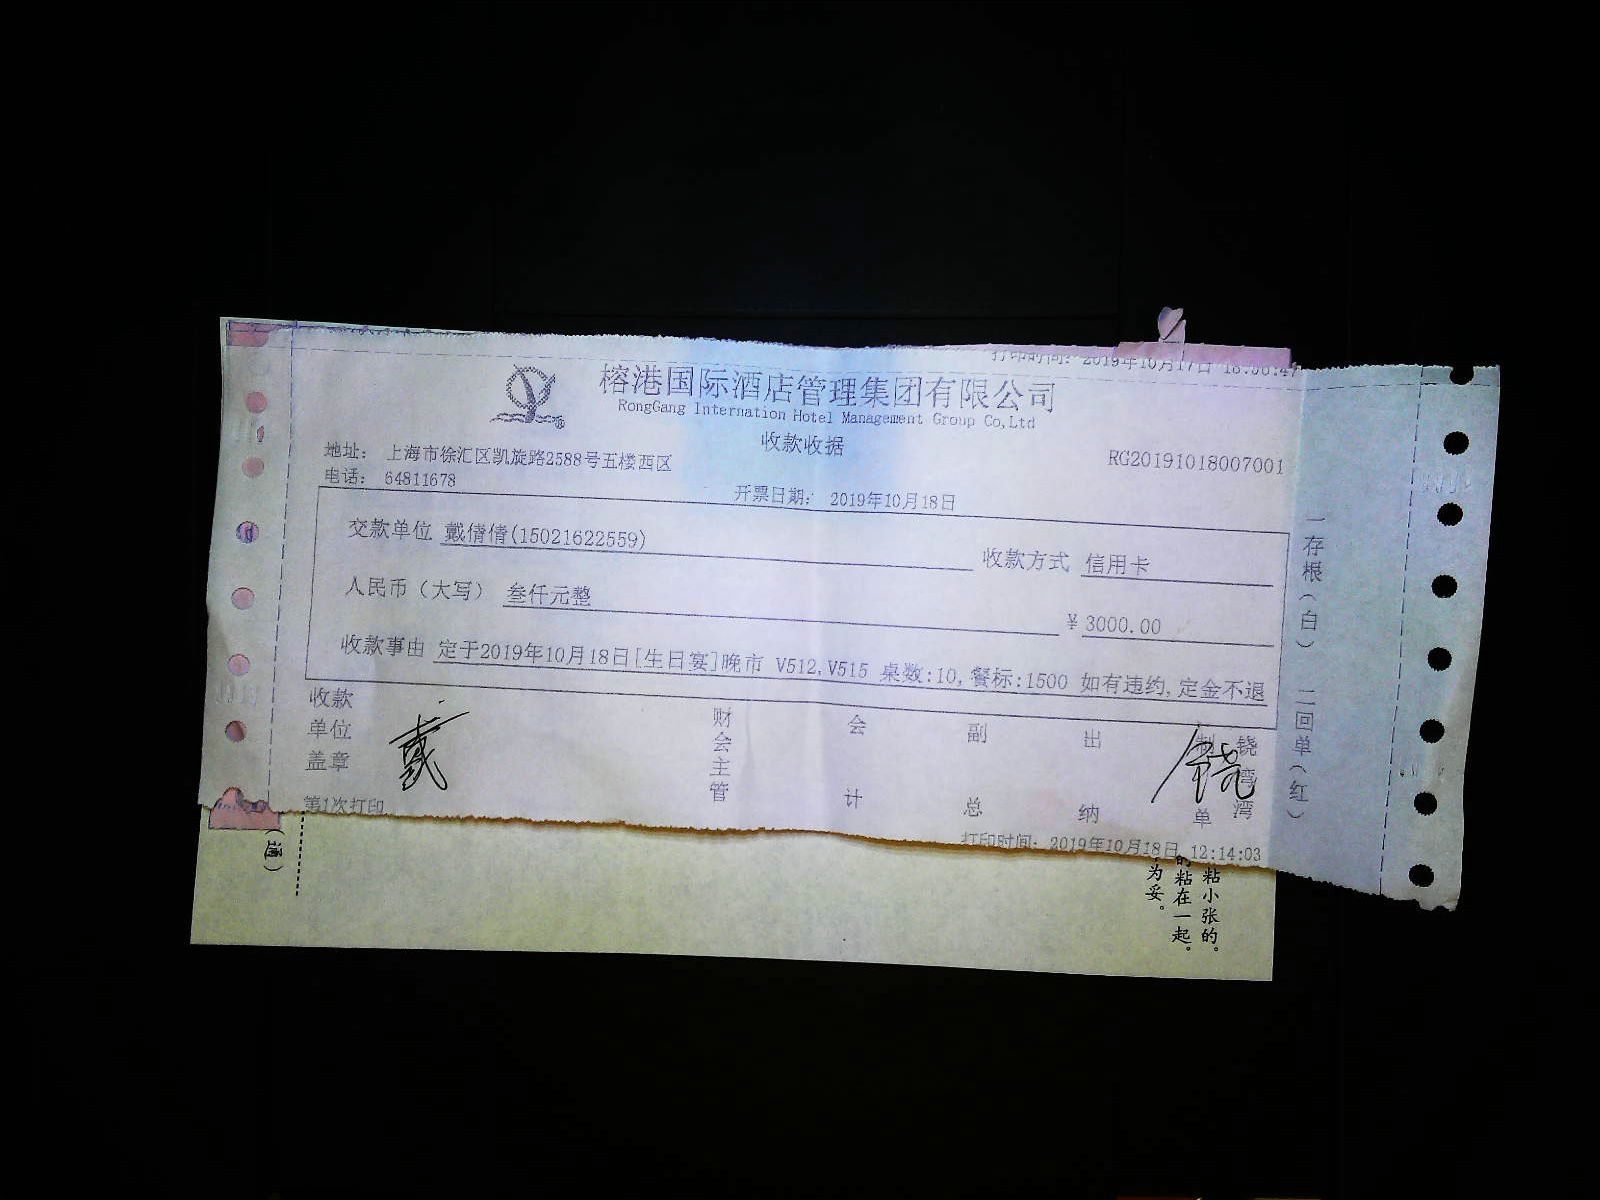 打印时间: 2019年10月17日 18:06:47
榕港国际酒店管理集团有限公司
RongGang Internation Hotel Management Group Co,Ltd
收款收据
地址: 上海市徐汇区凯旋路2588号五楼西区
RG20191018007001
电话: 64811678
开票日期: 2019年10月18日
交款单位 戴倩倩(15021622559)
收款方式 信用卡
人民币(大写) 叁仟元整
¥ 3000.00
收款事由 定于2019年10月18日[生日宴]晚市 V512,V515 桌数:10,餐标:1500 如有违约,定金不退
收款单位盖章
戴
财会主管
会计
副总
出纳
制单
铙湾湾
第1次打印
打印时间: 2019年10月18日 12:14:03
一存根(白) 二回单(红)
(通)
粘小张的。
的粘在一起。
为妥。